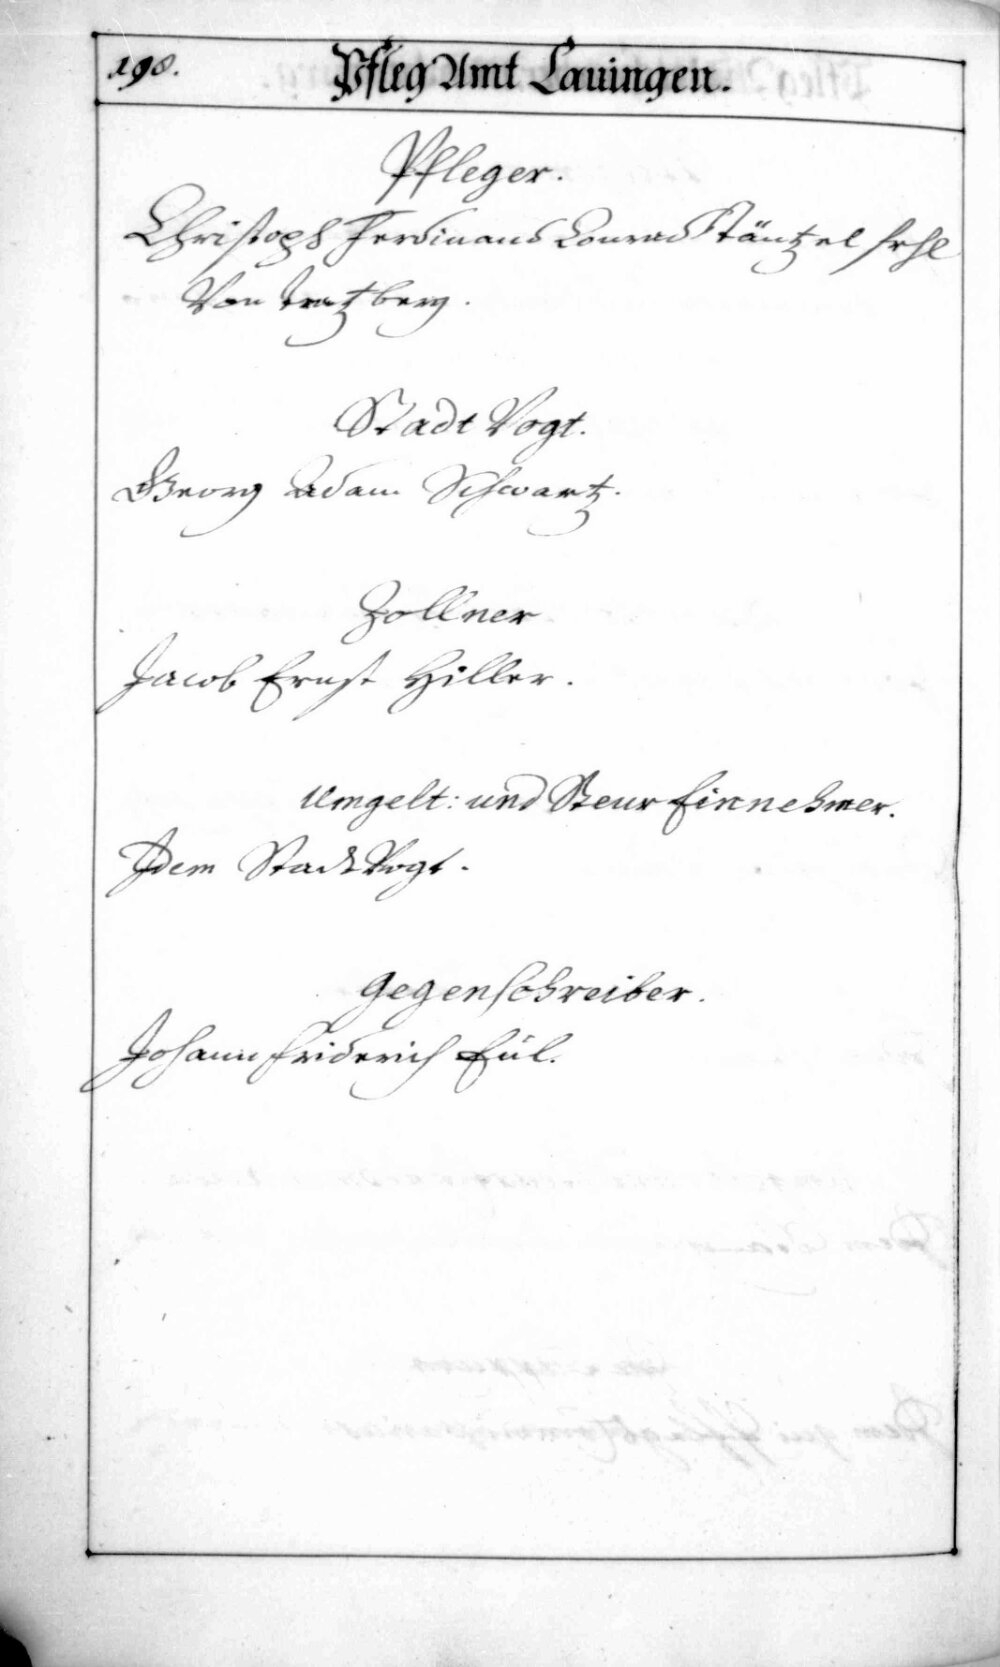 198.
Pfleg Amt Lauingen.
Pfleger.
Christoph Ferdinand Conrad Täntzel frhl
Von tratzberg.
Stadt Vogt.
Georg Adam Schwartz.
Zollner
Jacob Ernst Hiller.
Umgelt: und Steur Einnehmer.
Idem StadtVogt.
Gegenschreiber.
Johann friderich Eül.